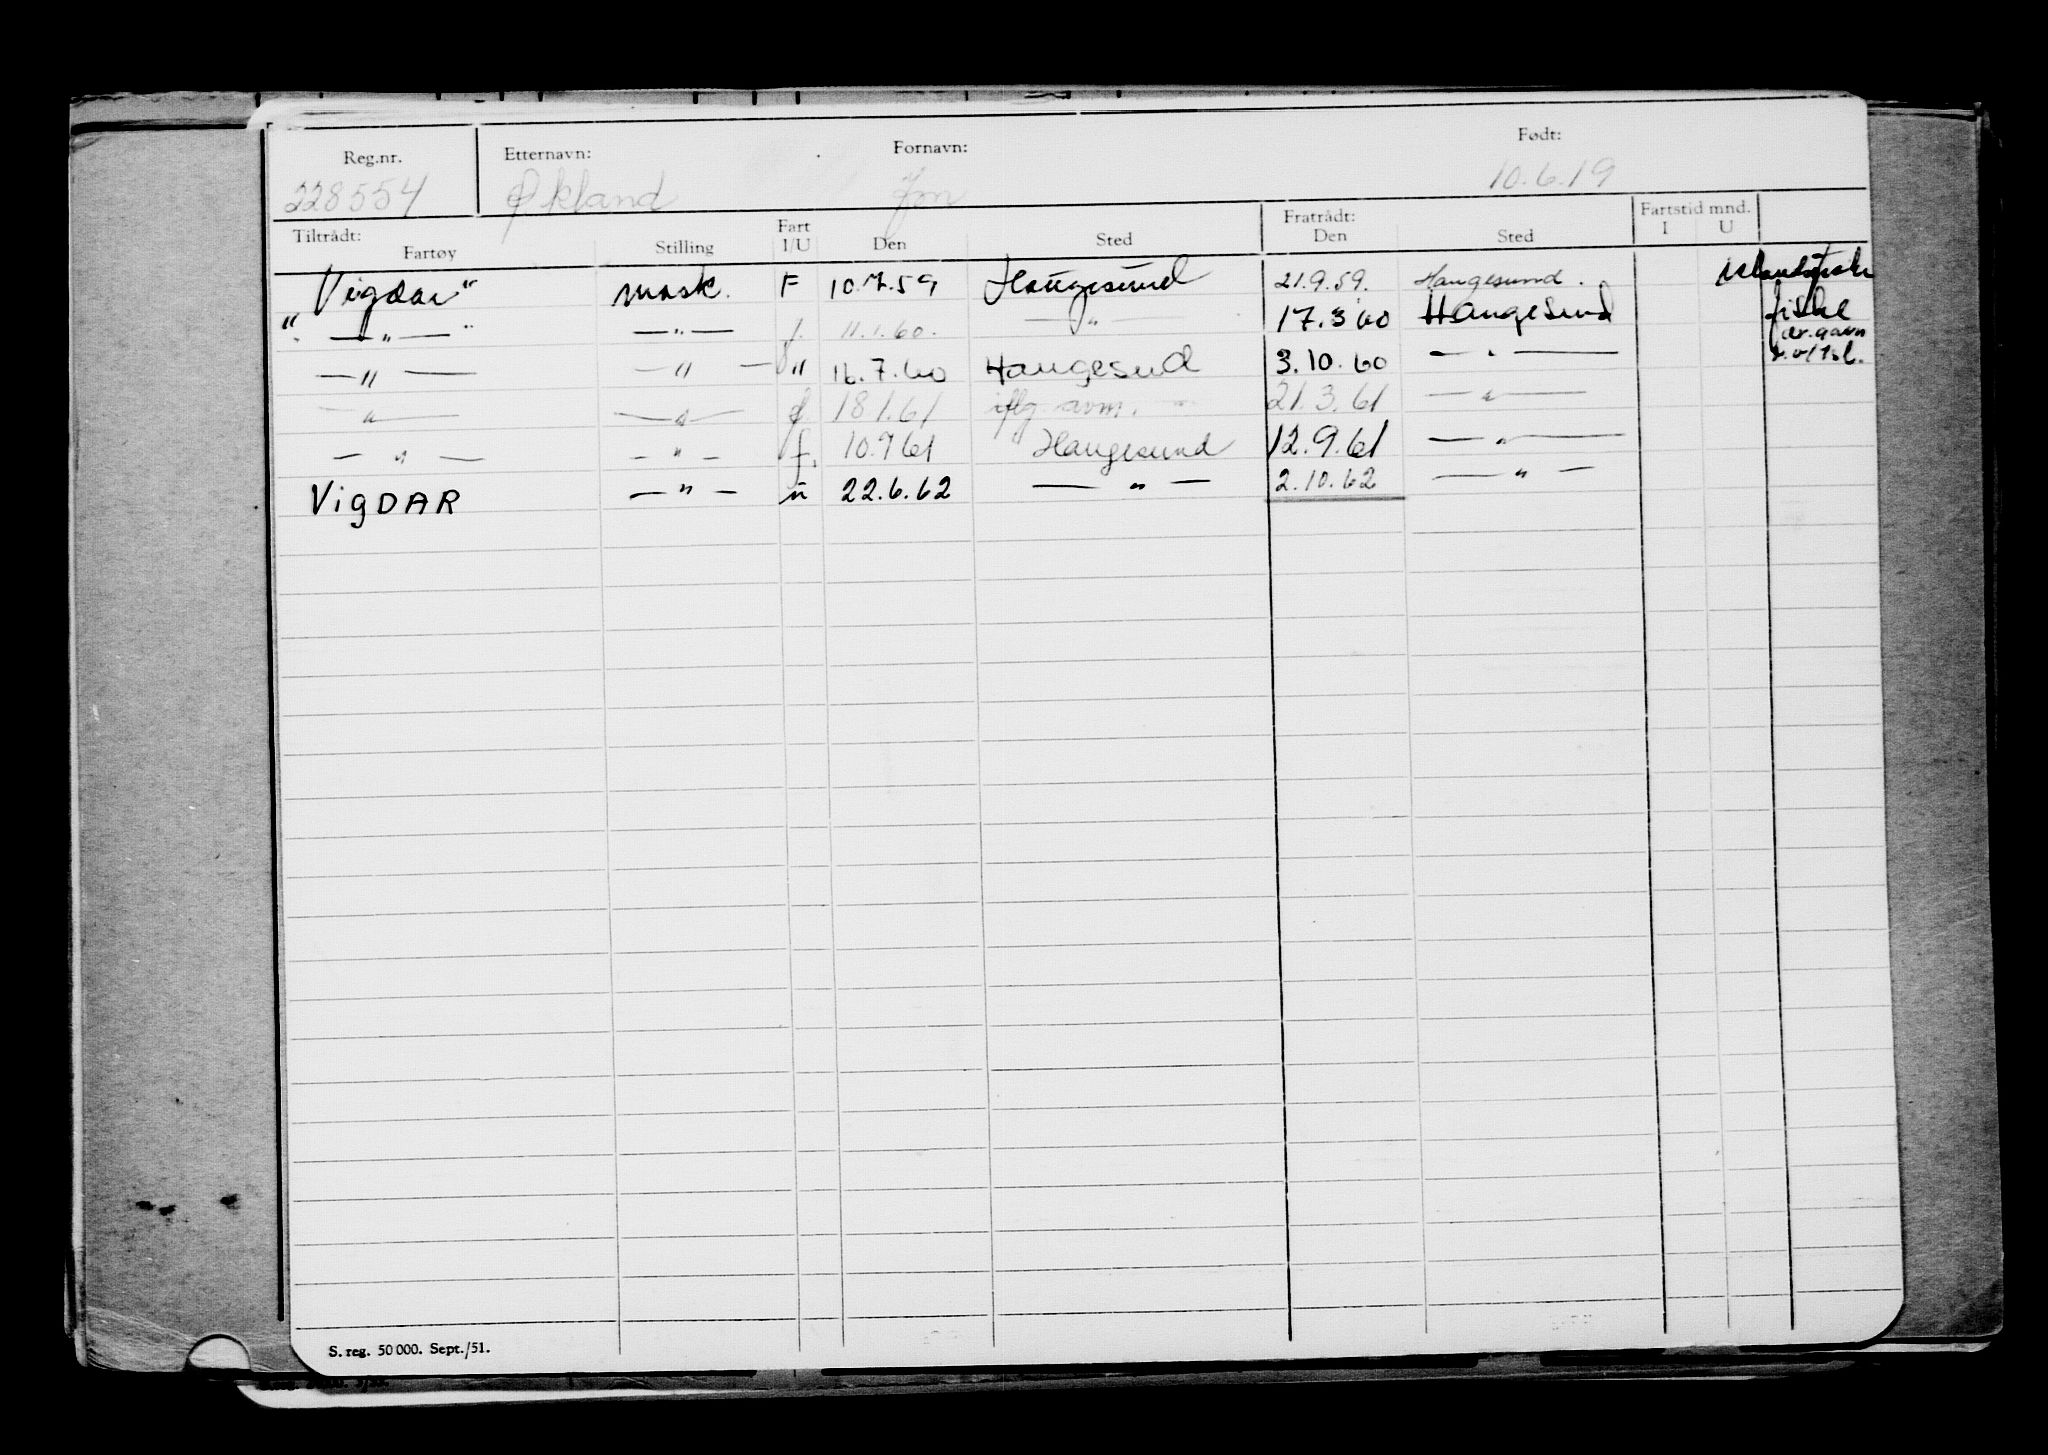 Reg.nr. Etternavn: Fornavn: Født:
228554 Økland Jon 10.6.19
Tiltrådt: Fart Fratrådt: Fartstid mnd.
Fartøy Stilling I/U Den Sted Den Sted I U
Vigdar" mask. F 10.7.59 Haugesund 21.9.59. Haugesund. Islandsfiske
" —"— " —"— f. 11.1.60. —"— 17.3 60 Haugesund fiske
—"— —"— " 16.7.60 Haugesund 3.10.60 —"—
—"— —"— f. 18.1.61 iflg. avm. 21.3.61 —"—
—"— —"— f. 10.7 61 Haugesund 12.9.61 —"—
VigDAR —"— u 22.6.62 —"— 2.10.62 —"—
S. reg. 50 000. Sept./51.